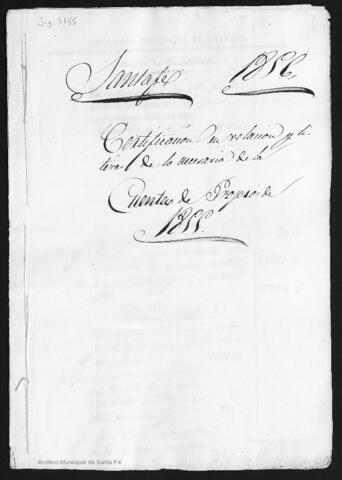 Sig. 3755
Santafé 1856
Certificación en relacion y li-
teral de lo necesario de la
Cuentas de Propios de
1855.
Archivo Municipal de Santa Fé